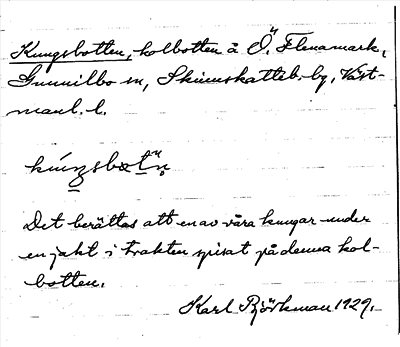 Kungsbotten, kolbotten å Ö. Flenamark,
Gunnilbo sn, Skinnskatteb. hg, Väst-
manl. l.
kúŋsbot'n̥
Det berättas att en av våra kungar under
en jakt i trakten spisat på denna kol-
botten.
Karl Björkman 1929.